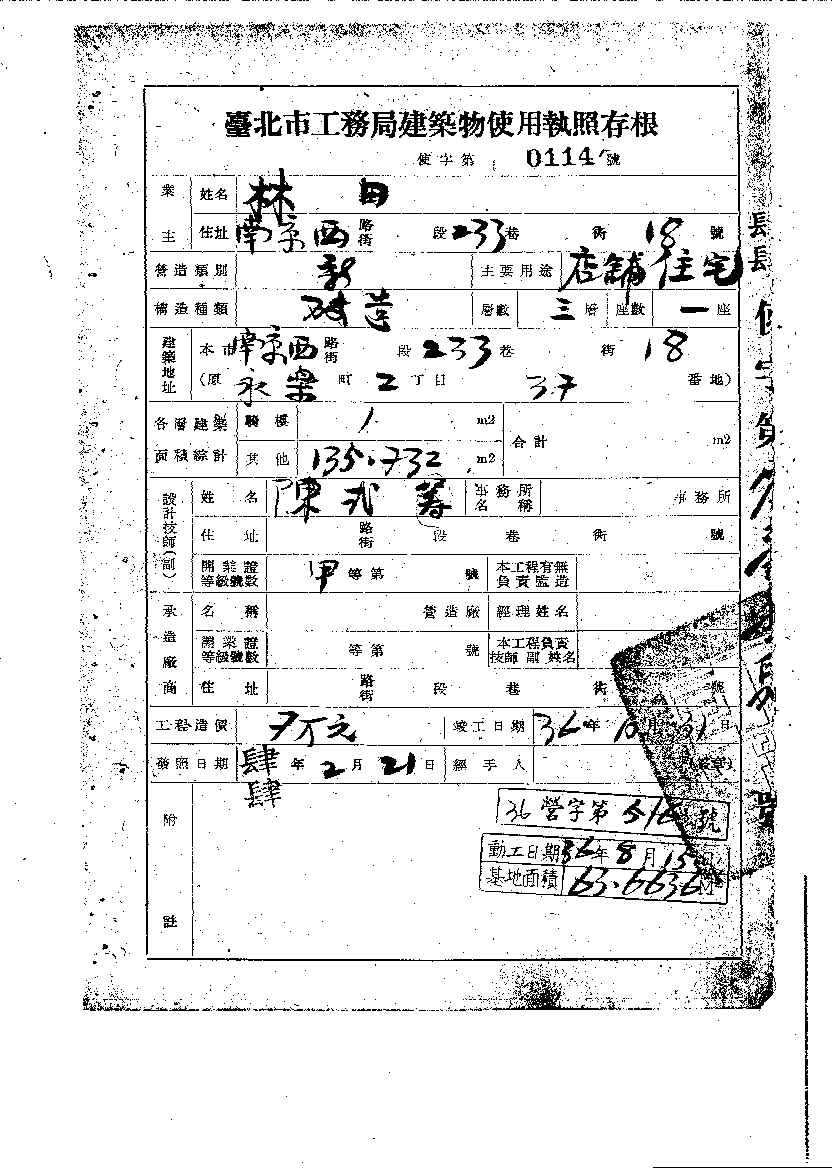 臺北市工務局建築物使用執照存根
使字第 0114 號
業主 姓名 林 田
住址 南京西 路街 段 233 巷 衖 18 號
營造類別 新 主要用途 店舖住宅
構造種類 磚造 層數 三層 座數 一座
建築地址 本市 南京西 路街 段 233 巷 衖 18
(原 永樂 町 2 丁目 37 番地)
各層建築面積綜計 騎樓 / m2 合計 m2
其他 135.732 m2
設計技師(副) 姓名 陳 籌 事務所名稱 事務所
住址 路街 段 巷 衖 號
開業證等級號數 甲 等第 號 本工程有無負責監造
承造廠商 名稱 營造廠 經理姓名
開業證等級號數 等第 號 本工程負責技師 副 姓名
住址 路街 段 巷 衖 號
工程造價 万元 竣工日期 36年 10月 31日
發照日期 肆肆 年 2月 21日 經手人 (蓋章)
附註
36營字第 號
動工日期 36年8月15日
基地面積 63.6636 M²
肆肆 使字第 號